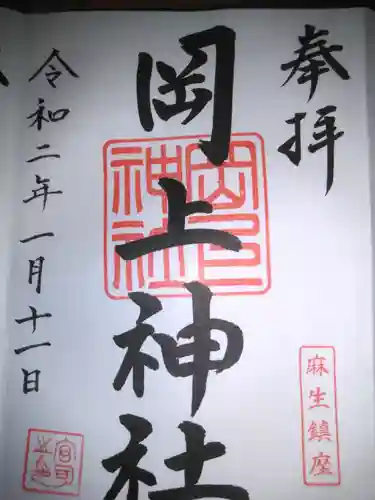 奉拝
岡上神社
令和二年一月十一日
岡上
神社
麻生鎮座
宮司
之印